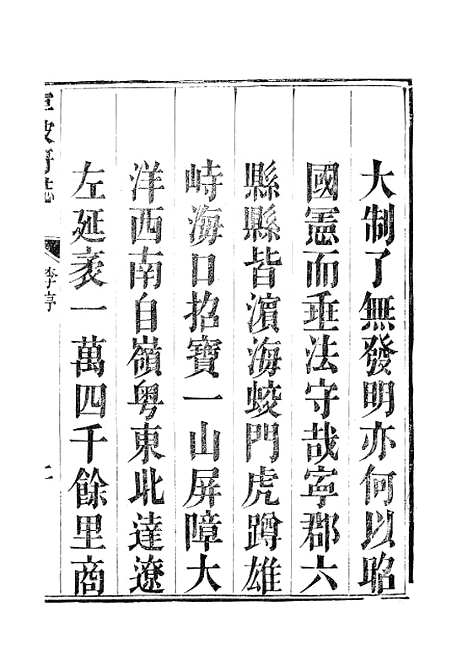 大制了無發明亦何以昭
國憲而垂法守哉寧郡六
縣縣皆濱海蛟門虎蹲雄
峙海口招寶一山屏障大
洋西南自嶺粵東北達遼
左延袤一萬四千餘里商
李序